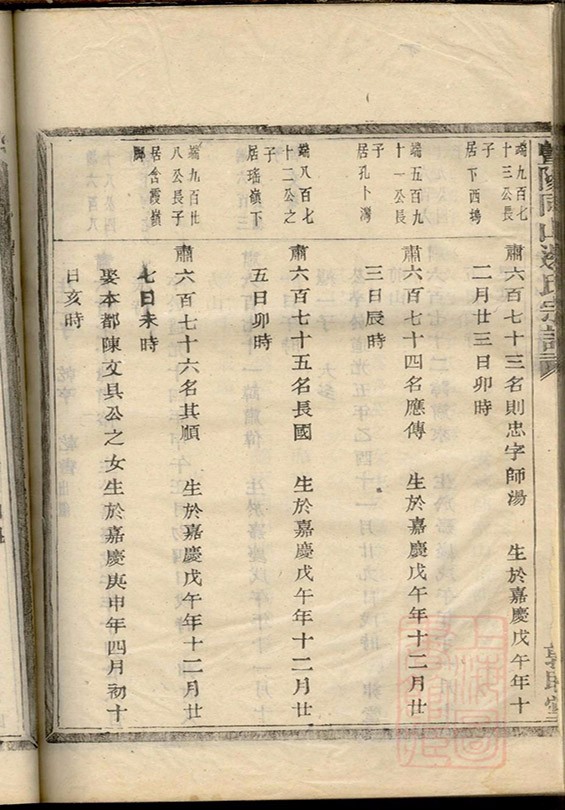 端九百七
十三公長
子
居下西塢
肅六百七十三名則忠字師湯 生於嘉慶戊午年十
二月廿三日卯時
端五百九
十一公長
子
居孔卜灣
肅六百七十四名應傳 生於嘉慶戊午年十二月廿
三日辰時
端八百七
十二公之
子
居瑤嶺下
肅六百七十五名長國 生於嘉慶戊午年十二月廿
五日卯時
端九百廿
八公長子
居含霞嶺
脚
肅六百七十六名其順 生於嘉慶戊午年十二月廿
七日未時
娶本都陳文具公之女生於嘉慶庚申年四月初十
日亥時